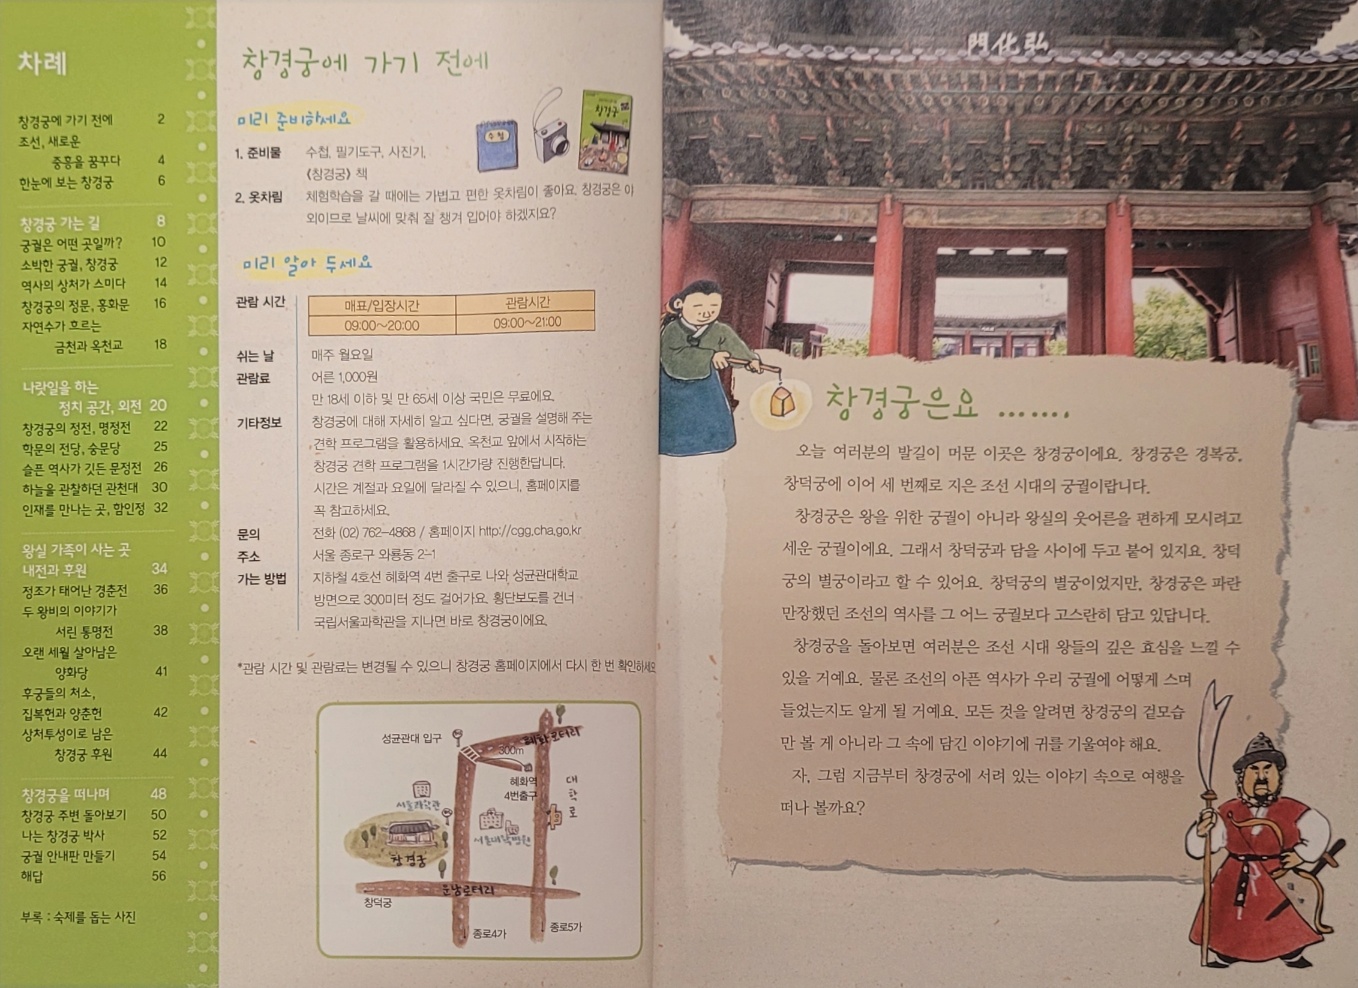 차례
창경궁에 가기 전에 2
조선, 새로운
중흥을 꿈꾸다 4
한눈에 보는 창경궁 6
창경궁 가는 길 8
궁궐은 어떤 곳일까? 10
소박한 궁궐, 창경궁 12
역사의 상처가 스미다 14
창경궁의 정문, 홍화문 16
자연수가 흐르는
금천과 옥천교 18
나랏일을 하는
정치 공간, 외전 20
창경궁의 정전, 명정전 22
학문의 전당, 숭문당 25
슬픈 역사가 깃든 문정전 26
하늘을 관찰하던 관천대 30
인재를 만나는 곳, 함인정 32
왕실 가족이 사는 곳
내전과 후원 34
정조가 태어난 경춘전 36
두 왕비의 이야기가
서린 통명전 38
오랜 세월 살아남은
양화당 41
후궁들의 처소,
집복헌과 양춘헌 42
상처투성이로 남은
창경궁 후원 44
창경궁을 떠나며 48
창경궁 주변 돌아보기 50
나는 창경궁 박사 52
궁궐 안내판 만들기 54
해답 56
부록 : 숙제를 돕는 사진
창경궁에 가기 전에
미리 준비하세요
수첩
창경궁
1. 준비물 수첩, 필기도구, 사진기,
《창경궁》 책
2. 옷차림 체험학습을 갈 때에는 가볍고 편한 옷차림이 좋아요. 창경궁은 야
외이므로 날씨에 맞춰 잘 챙겨 입어야 하겠지요?
미리 알아 두세요
관람 시간 매표/입장시간 관람시간
09:00~20:00 09:00~21:00
쉬는 날 매주 월요일
관람료 어른 1,000원
만 18세 이하 및 만 65세 이상 국민은 무료예요.
기타정보 창경궁에 대해 자세히 알고 싶다면, 궁궐을 설명해 주는
견학 프로그램을 활용하세요. 옥천교 앞에서 시작하는
창경궁 견학 프로그램을 1시간가량 진행한답니다.
시간은 계절과 요일에 달라질 수 있으니, 홈페이지를
꼭 참고하세요.
문의 전화 (02) 762-4868 / 홈페이지 http://cgg.cha.go.kr
주소 서울 종로구 와룡동 2-1
가는 방법 지하철 4호선 혜화역 4번 출구로 나와 성균관대학교
방면으로 300미터 정도 걸어가요. 횡단보도를 건너
국립서울과학관을 지나면 바로 창경궁이에요.
*관람 시간 및 관람료는 변경될 수 있으니 창경궁 홈페이지에서 다시 한 번 확인하세요
성균관대 입구
혜화로터리
300m
혜화역
4번출구
대학로
서울과학관
서울대학병원
창경궁
원남로터리
창덕궁
종로4가
종로5가
門化弘
창경궁은요 .......
오늘 여러분의 발길이 머문 이곳은 창경궁이에요. 창경궁은 경복궁,
창덕궁에 이어 세 번째로 지은 조선 시대의 궁궐이랍니다.
창경궁은 왕을 위한 궁궐이 아니라 왕실의 웃어른을 편하게 모시려고
세운 궁궐이에요. 그래서 창덕궁과 담을 사이에 두고 붙어 있지요. 창덕
궁의 별궁이라고 할 수 있어요. 창덕궁의 별궁이었지만, 창경궁은 파란
만장했던 조선의 역사를 그 어느 궁궐보다 고스란히 담고 있답니다.
창경궁을 돌아보면 여러분은 조선 시대 왕들의 깊은 효심을 느낄 수
있을 거예요. 물론 조선의 아픈 역사가 우리 궁궐에 어떻게 스며
들었는지도 알게 될 거예요. 모든 것을 알려면 창경궁의 겉모습
만 볼 게 아니라 그 속에 담긴 이야기에 귀를 기울여야 해요.
자, 그럼 지금부터 창경궁에 서려 있는 이야기 속으로 여행을
떠나 볼까요?